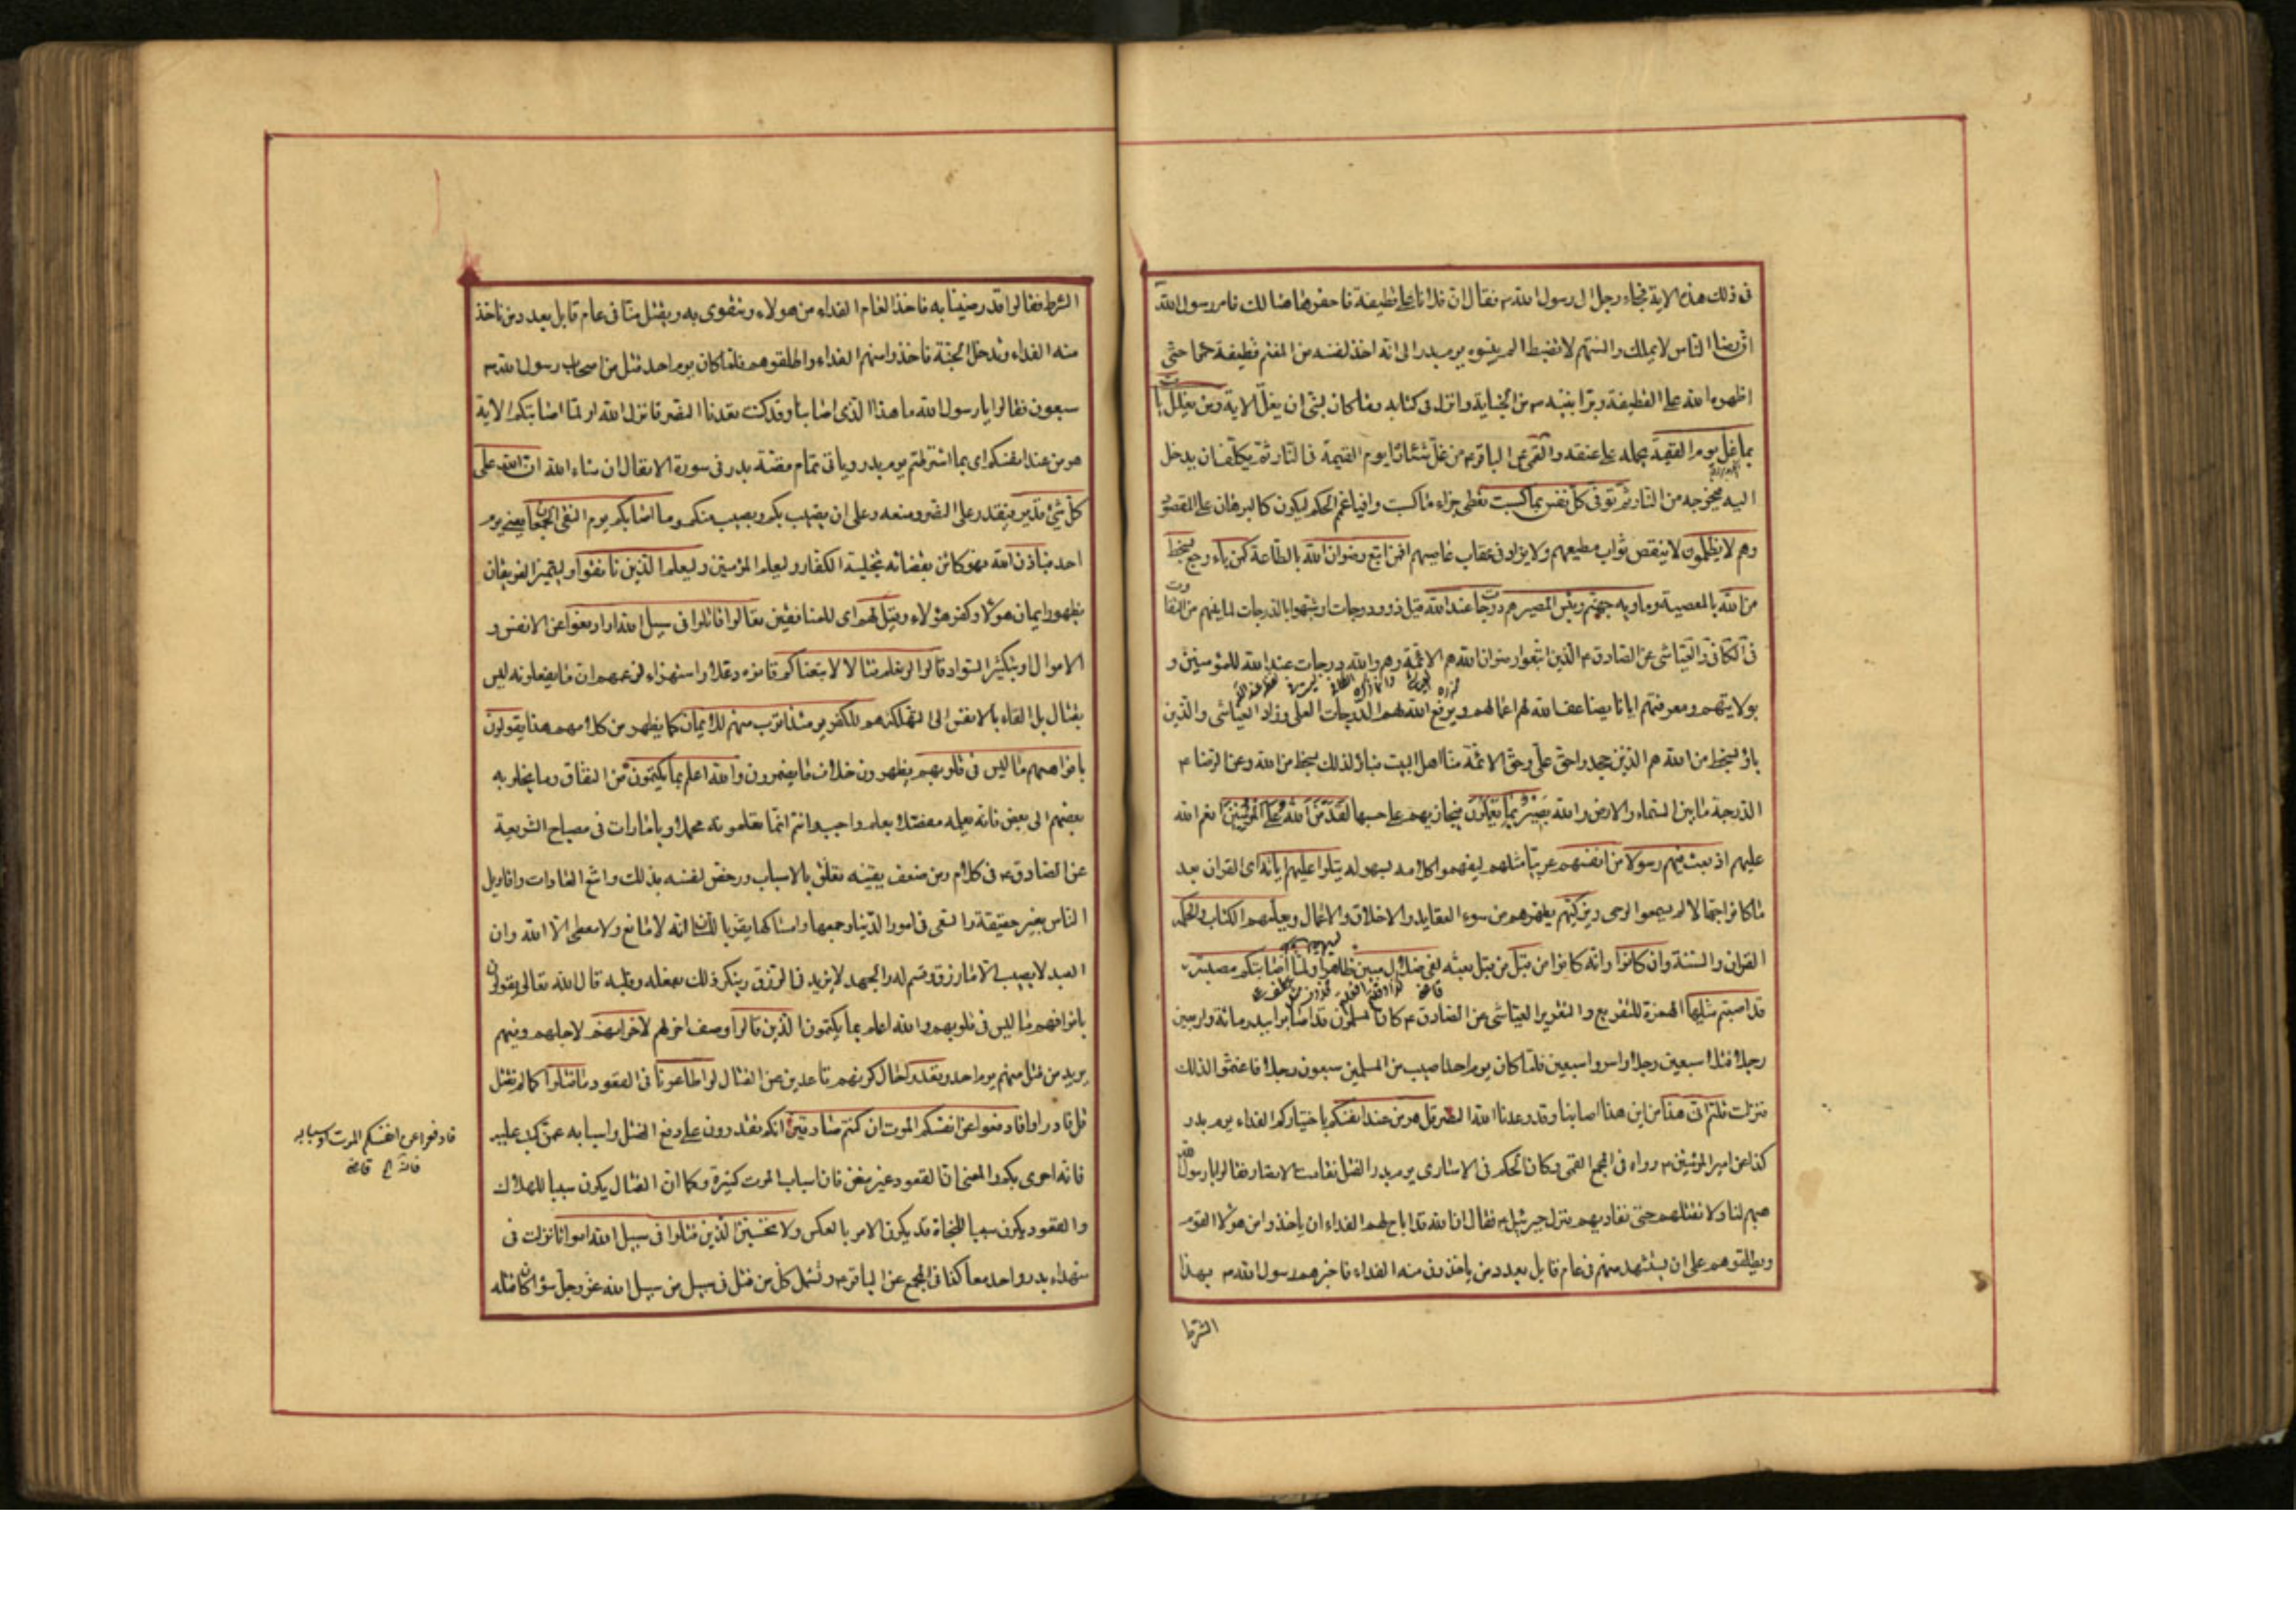 فى ذلك هذه الاية فجاء رجل الى رسول الله ص فقال ان فلانا غل قطيفة فاحفرها هنالك فامر رسول الله
ان رضا الناس لا يملك والسنتهم لا تضبط الم ينسبوه يوم بدر الى انه اخذ لنفسه من المغنم قطيفة حمرا حتى
اظهره الله على القطيفة وبرا نبيه ص من الخيانة وانزل فى كتابه وما كان لنبى ان يغل الاية ومن يغلل يات
بما غل يوم القيمة يحمله على عنقه والقمى عن الباقر ع من غل شيئا راه يوم القيمة فى النار ثم يكلف ان يدخل
اليه فيخرجه من النار ثم توفى كل نفس ما كسبت تعطى جزاء ما كسبت وافيا عمم الحكم ليكون كالبرهان على المقصود
وهم لا يظلمون لا ينقص ثواب مطيعهم ولا يزاد فى عقاب عاصيهم افمن اتبع رضوان الله بالطاعة كمن باء رجع بسخط
من الله بالمعصية وماويه جهنم وبئس المصير هم درجات عند الله قيل ذوو درجات او شبهوا بالدرجات لما بينهم من التفاوت
فى الكافى والعياشى عن الصادق ع الذين اتبعوا رضوان الله هم الائمة وهم والله درجات عند الله للمؤمنين و
بولايتهم ومعرفتهم ايانا يضاعف الله لهم اعمالهم ويرفع الله لهم الدرجات العلى وزاد العياشى والذين
باؤ بسخط من الله هم الذين جحدوا حق على وحق الائمة منا اهل البيت فباؤ لذلك بسخط من الله وعن الرضا ع
الدرجة ما بين السماء والارض والله بصير بما يعملون فيجازيهم على حسبها لقد من الله على المؤمنين انعم الله
عليهم اذ بعث فيهم رسولا من انفسهم عربيا مثلهم ليفهموا كلامه بسهولة يتلوا عليهم اياته اى القران بعد
ما كانوا جهالا لم يسمعوا الوحى ويزكيهم يطهرهم من سوء العقايد والاخلاق والاعمال ويعلمهم الكتاب والحكمة
القران والسنة وان كانوا وانه كانوا من قبل من قبل بعثه لفى ضلال مبين ظاهر اولما اصابتكم مصيبة
قد اصبتم مثليها الهمزة للتقريع والتقرير العياشى عن الصادق ع كان المسلمون قد اصابوا ببدر مائة واربعين
رجلا قتلوا سبعين رجلا واسروا سبعين فلما كان يوم احد اصيب من المسلمين سبعون رجلا فاغتموا لذلك
فنزلت قلتم انى هذا من اين هذا اصابنا وقد وعدنا الله النصر قل هو من عند انفسكم باختياركم الفداء يوم بدر
كذا عن امير المؤمنين ع رواه فى المجمع القمى وكان الحكم فى الاسارى يوم بدر القتل فقامت الانصار فقالوا يا رسول الله
هبهم لنا ولا تقتلهم حتى نفاديهم فنزل جبرئيل ع فقال ان الله قد اباح لهم الفداء ان ياخذوا من هؤلا القوم
ويطلقوهم على ان يستشهد منهم فى عام قابل بعدد من ياخذون منه الفداء فاخبرهم رسول الله ص بهذا
الشرط
الشرط فقالوا قد رضينا به ناخذ العام الفداء من هولاء ونتقوى به ويقتل منا فى عام قابل بعدد من ناخذ
منه الفداء وندخل الجنة فاخذوا منهم الفداء واطلقوهم فلما كان يوم احد قتل من اصحاب رسول الله ص
سبعون فقالوا يا رسول الله ما هذا الذى اصابنا وقد كنت تعدنا النصر فانزل الله اولما اصابتكم الاية
هو من عند انفسكم اى بما اشترطتم يوم بدر وياتى تمام قصة بدر فى سورة الانفال ان شاء الله ان الله على
كل شئ قدير فيقدر على النصر ومنعه وعلى ان يصيب بكم ويصيب منكم وما اصابكم يوم التقى الجمعان يعنى يوم
احد فباذن الله فهو كائن بقضائه تخلية الكفار وليعلم المؤمنين وليعلم الذين نافقوا وليتميز الفريقان
بظهور ايمان هؤلا وكفر هؤلاء وقيل لهم اى للمنافقين تعالوا قاتلوا فى سبيل الله او ادفعوا عن الانفس و
الاموال او بتكثير السواد قالوا لو نعلم قتالا لاتبعناكم قالوه دغلا واستهزاء لزعمهم ان ما يفعلونه ليس
بقتال بل القاء بالانفس الى التهلكة هم للكفر يومئذ اقرب منهم للايمان كما يظهر من كلامهم هذا يقولون
بافواههم ما ليس فى قلوبهم يظهرون خلاف ما يضمرون والله اعلم بما يكتمون من النفاق وما يخلو به
بعضهم الى بعض فانه يعلمه مفصلا بعلم واجب وانتم انما تعلمونه مجملا بامارات فى مصباح الشريعة
عن الصادق ع فى كلام ومن ضعف يقينه تعلق بالاسباب ورخص لنفسه بذلك واتبع العادات واقاويل
الناس بغير حقيقة والسعى فى امور الدنيا وجمعها وامساكها يقر باللسان انه لا مانع ولا معطى الا الله وان
العبد لا يصيب الا ما رزق وقسم له والجهد لا يزيد فى الرزق وينكر ذلك بفعله وقلبه قال الله تعالى يقولون
بافواههم ما ليس فى قلوبهم والله اعلم بما يكتمون الذين قالوا وصف اخر لهم لاخوانهم لاجلهم وفيهم
يريد من قتل منهم يوم احد وقعدوا حال كونهم قاعدين عن القتال لو اطاعونا فى القعود ما قتلوا كما لم نقتل
قل فادراوا فادفعوا عن انفسكم الموت ان كنتم صادقين انكم تقدرون على دفع القتل واسبابه عمن كتب عليه
فانه احرى بكم والمعنى ان القعود غير مغن فان اسباب الموت كثيرة وكما ان القتال يكون سببا للهلاك
والقعود يكون سببا للنجاة قد يكون الامر بالعكس ولا تحسبن الذين قتلوا فى سبيل الله امواتا نزلت فى
شهداء بدر واحد معا كذا فى المجمع عن الباقر ع وتشمل كل من قتل فى سبيل من سبل الله عز وجل سواء كان قتله
فادفعوا عن انفسكم الموت واسبابه
فانه